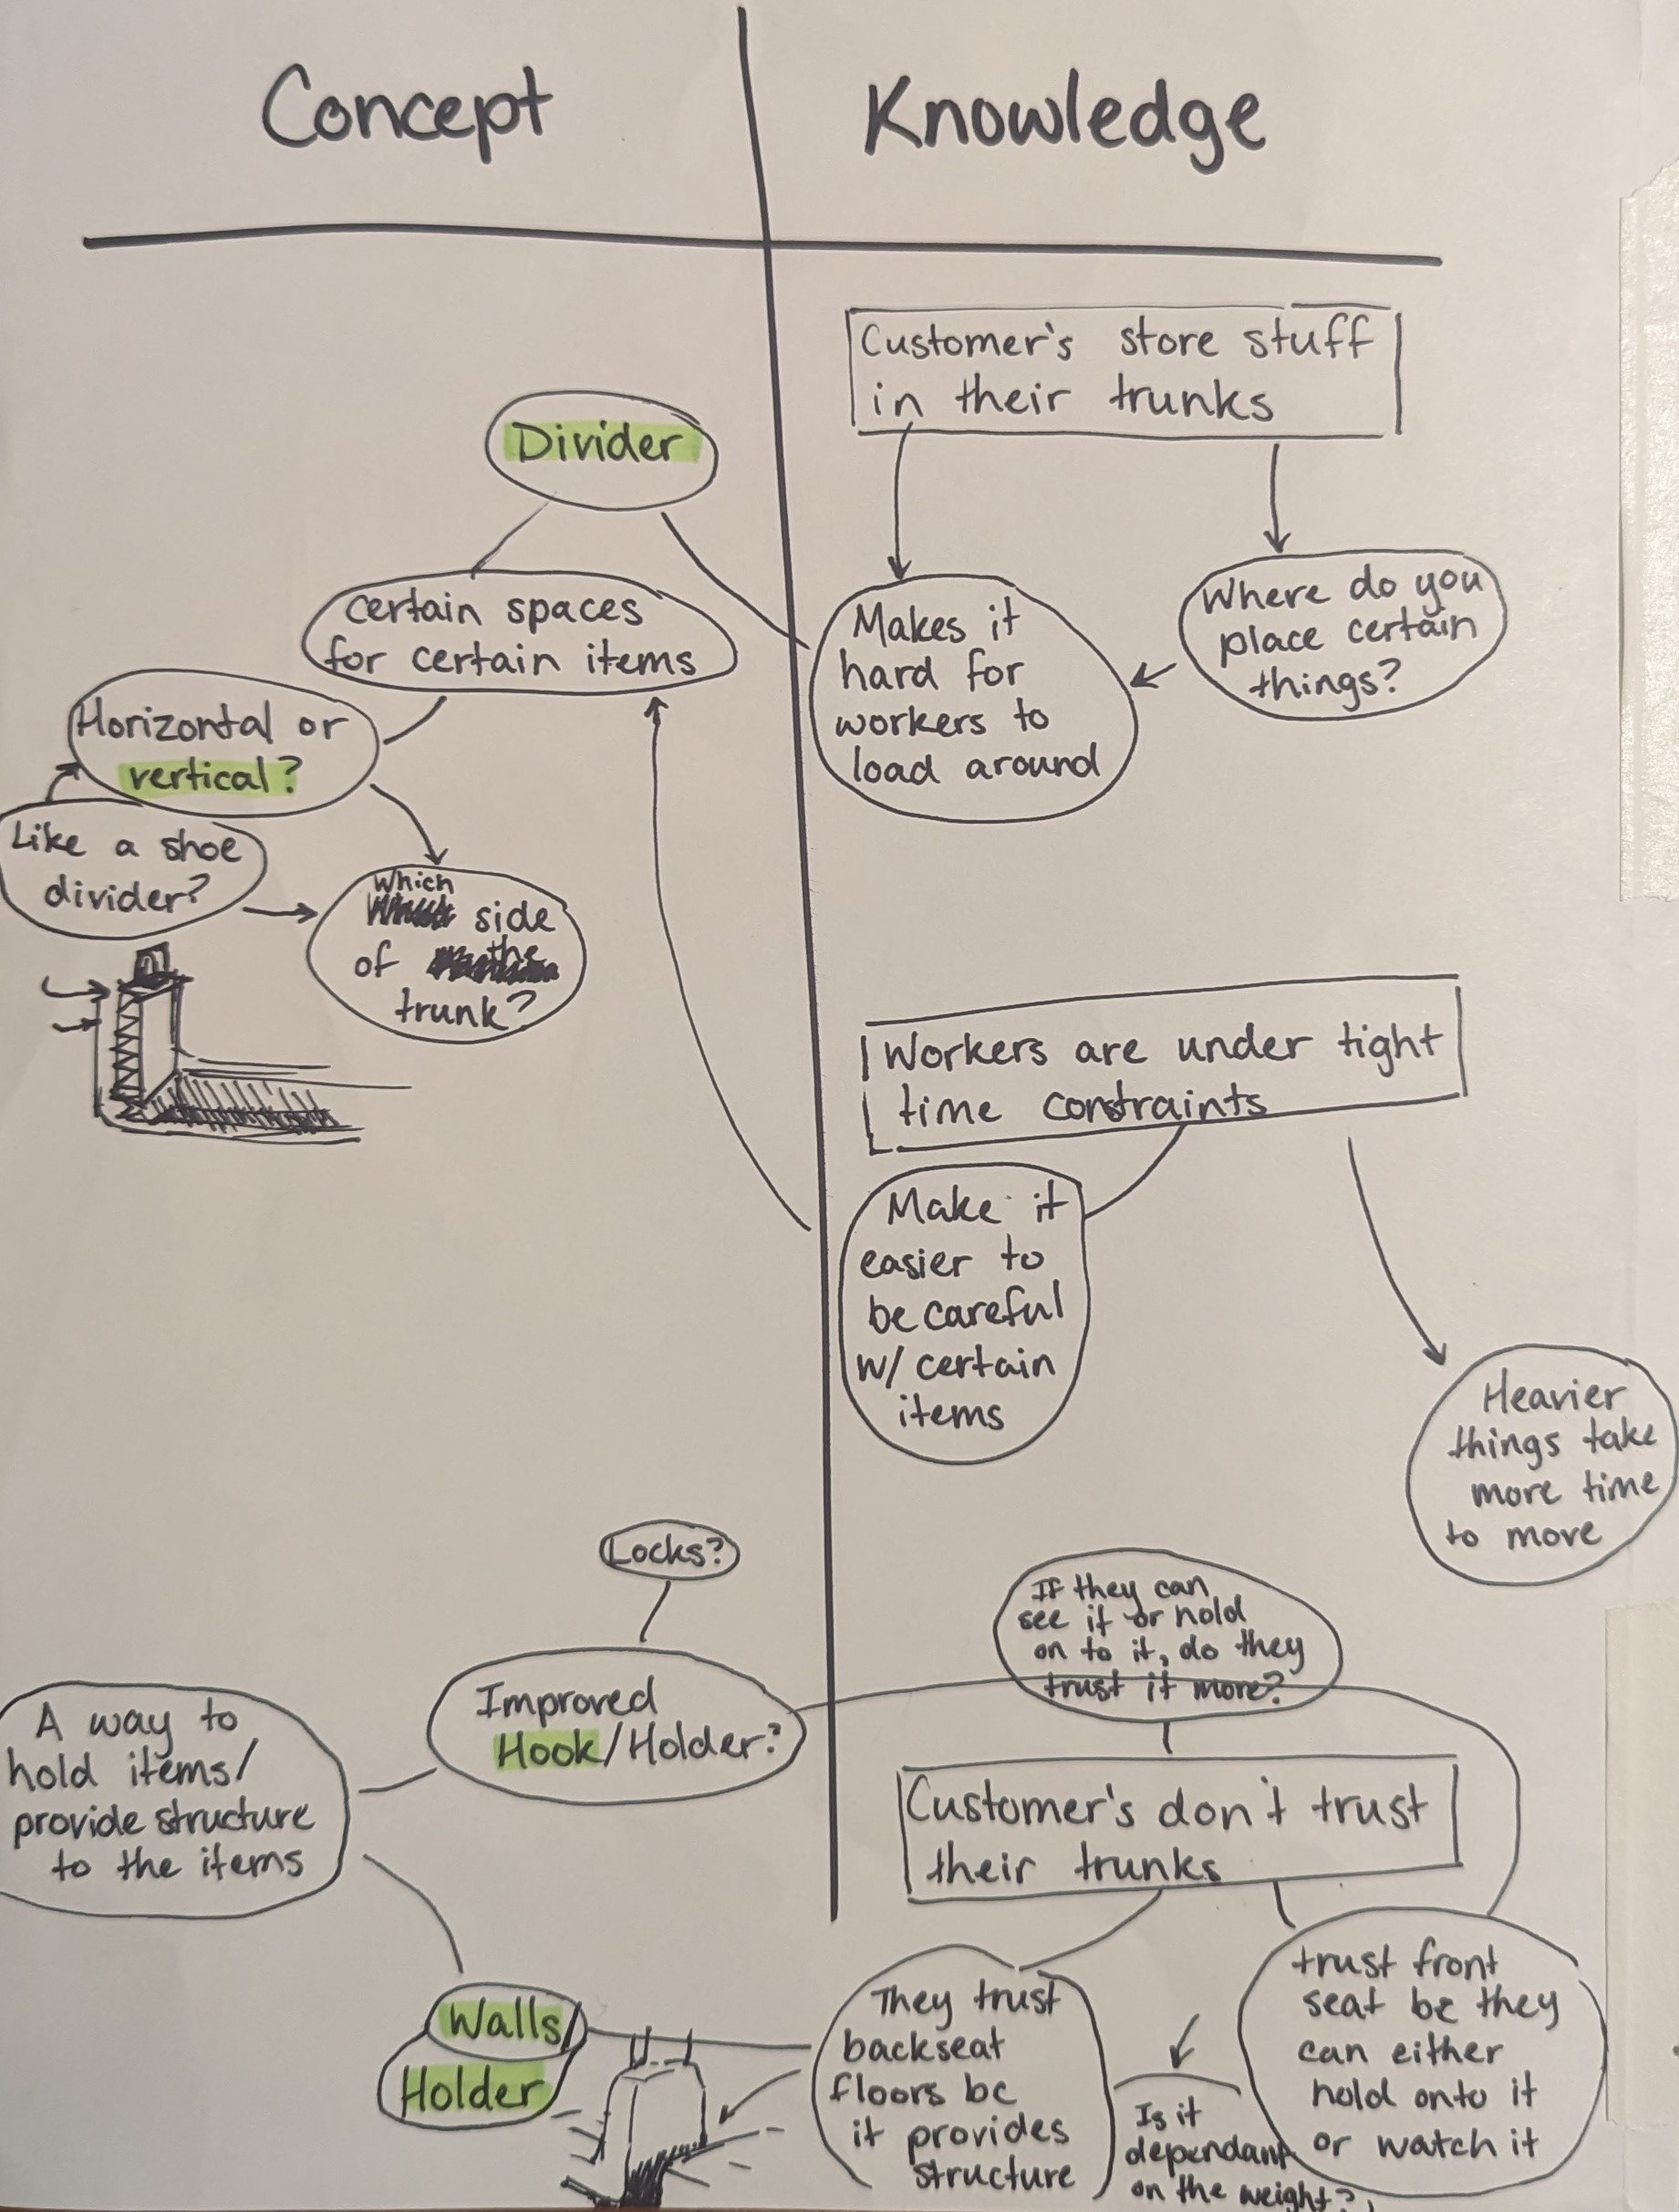 Concept
Knowledge
Customer's store stuff
in their trunks
Divider
Certain spaces
for certain items
Makes it
hard for
workers to
load around
Where do you
place certain
things?
Horizontal or
vertical?
Like a shoe
divider?
Which
side
of the
trunk?
Workers are under tight
time constraints
Make it
easier to
be careful
w/ certain
items
Heavier
things take
more time
to move
Locks?
If they can
see it or hold
on to it, do they
trust it more?
Improved
Hook/Holder?
A way to
hold items/
provide structure
to the items
Customer's don't trust
their trunks
Walls/
Holder
They trust
backseat
floors bc
it provides
structure
Is it
dependant
on the weight?
trust front
seat bc they
can either
hold onto it
or watch it